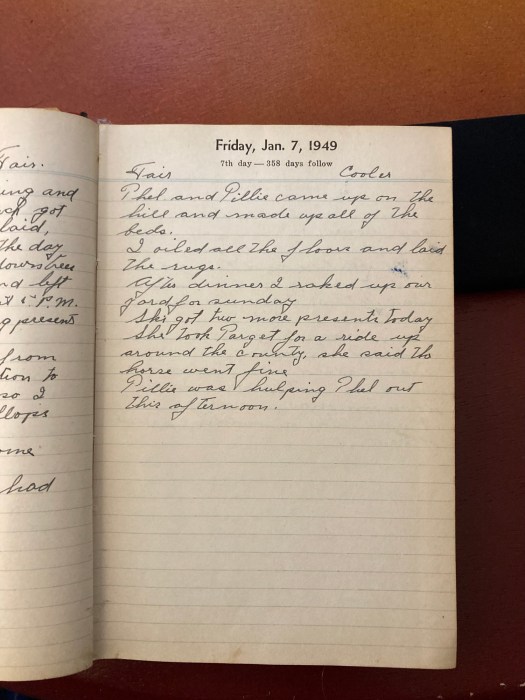 Fair.
ing and
got
laid,
the day
downstree
nd left
5 P.M.
g present
from
tion to
so I
llops
ome
had
Friday, Jan. 7, 1949
7th day — 358 days follow
Fair Cooler
Phel and Pillie came up on the
hill and made up all of the
beds.
I oiled all the floors and laid
the rugs.
After dinner I raked up our
yard for sunday
She got two more presents today
She took Parget for a ride up
around the county, she said the
horse went fine
Pillie was hulping Phel out
this afternoon.